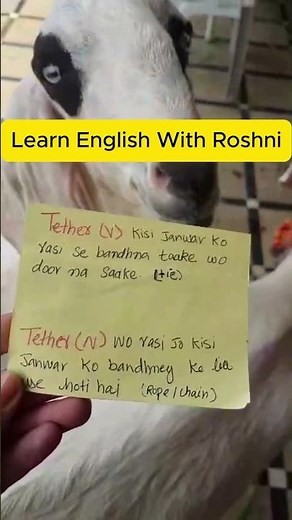 Learn English With Roshni
Tether (V) Kisi Janwar Ko
rasi se bandhna taake wo
door na saake. (tie)
Tether (N) wo rasi Jo Kisi
Janwar Ko bandhney Ke
use hoti hai (Rope / chain)